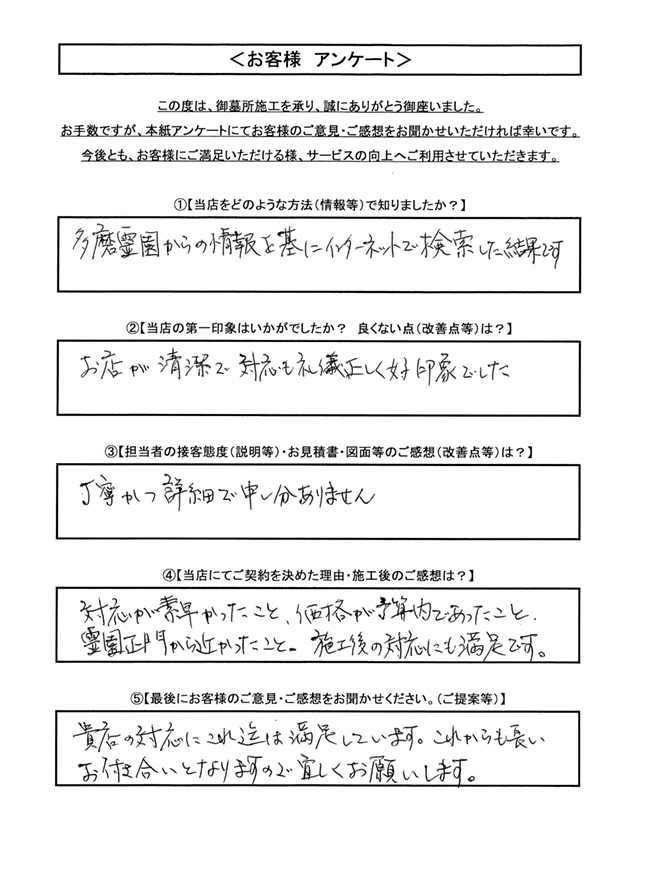 ＜お客様　アンケート＞
この度は、御墓所施工を承り、誠にありがとう御座いました。
お手数ですが、本紙アンケートにてお客様のご意見・ご感想をお聞かせいただければ幸いです。
今後とも、お客様にご満足いただける様、サービスの向上へご利用させていただきます。
①【当店をどのような方法（情報等）で知りましたか？】
多磨霊園からの情報を基にインターネットで検索した結果です
②【当店の第一印象はいかがでしたか？　良くない点（改善点等）は？】
お店が清潔で対応も礼儀正しく好印象でした
③【担当者の接客態度（説明等）・お見積書・図面等のご感想（改善点等）は？】
丁寧かつ詳細で申し分ありません
④【当店にてご契約を決めた理由・施工後のご感想は？】
対応が素早かったこと、価格が予算内であったこと、
霊園正門から近かったこと。施工後の対応にも満足です。
⑤【最後にお客様のご意見・ご感想をお聞かせください。（ご提案等）】
貴店の対応にこれ迄は満足しています。これからも長い
お付き合いとなりますので宜しくお願いします。